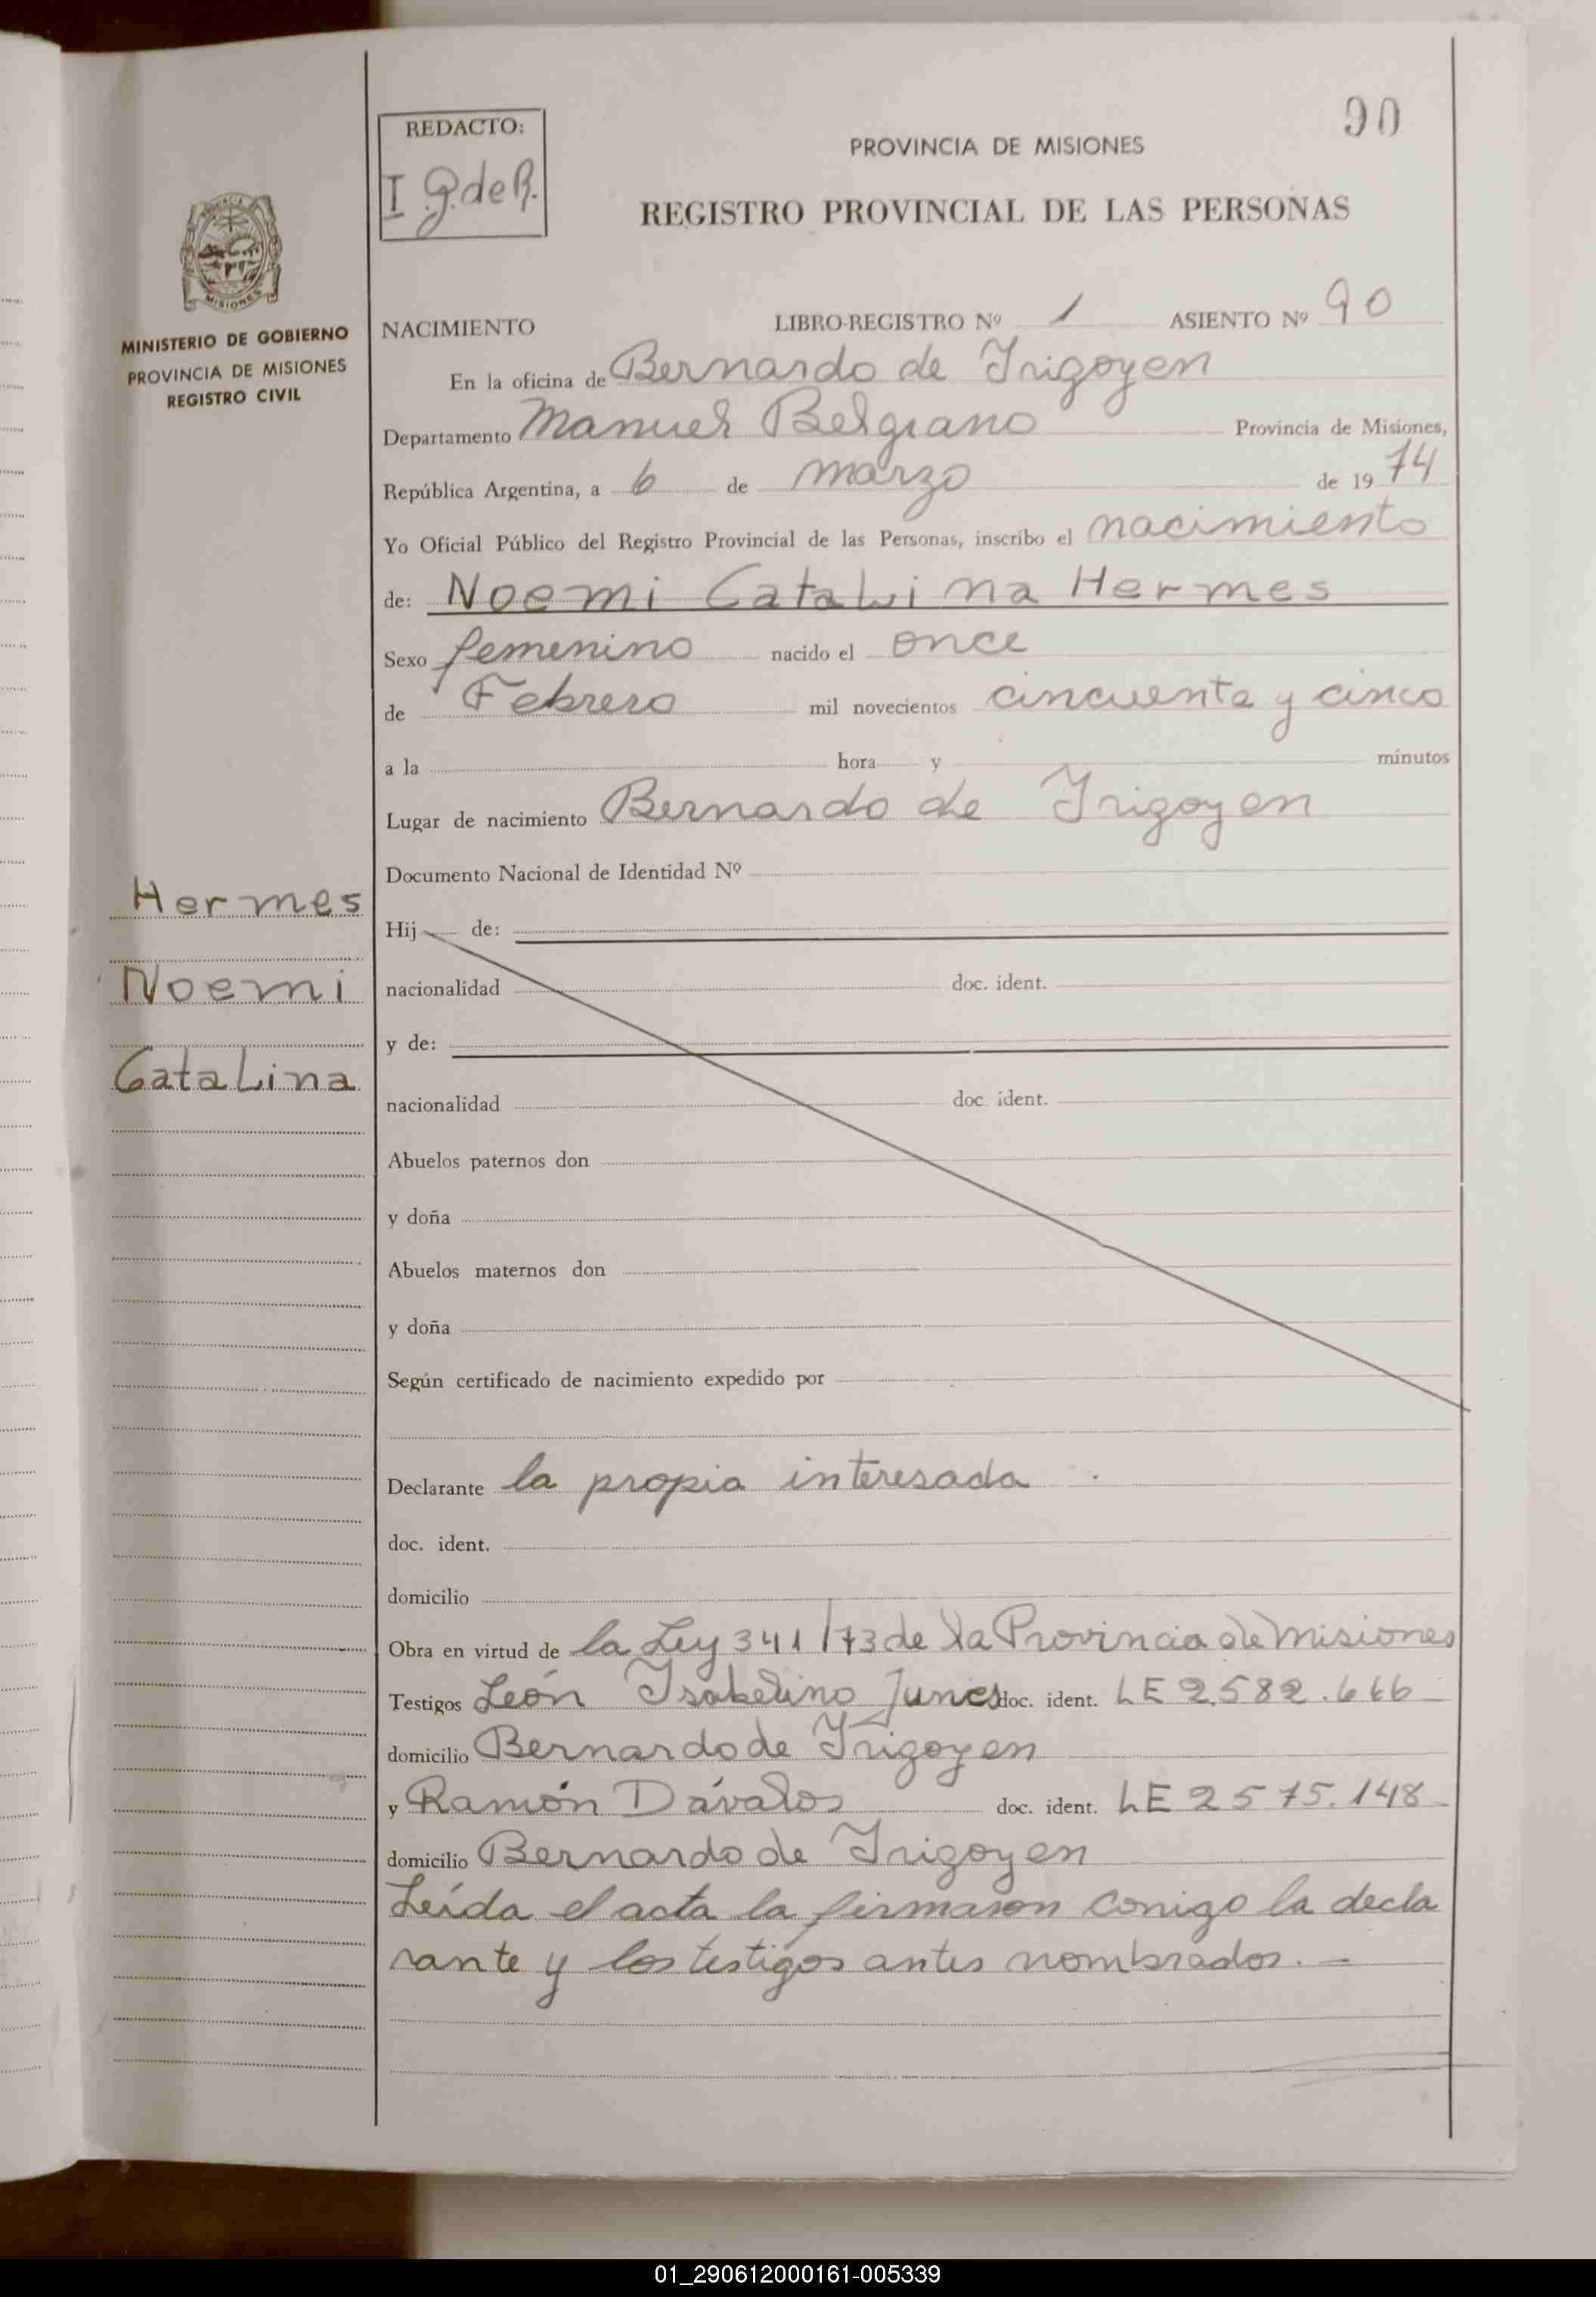 90
REDACTO:
I G. de R.
PROVINCIA DE MISIONES
REGISTRO PROVINCIAL DE LAS PERSONAS
MISIONES
MINISTERIO DE GOBIERNO
PROVINCIA DE MISIONES
REGISTRO CIVIL
NACIMIENTO LIBRO-REGISTRO Nº 1 ASIENTO Nº 90
En la oficina de Bernardo de Irigoyen
Departamento Manuel Belgrano Provincia de Misiones,
República Argentina, a 6 de marzo de 1974
Yo Oficial Público del Registro Provincial de las Personas, inscribo el nacimiento
de: Noemi Catalina Hermes
Sexo femenino nacido el once
de Febrero mil novecientos cincuenta y cinco
a la hora y minutos
Lugar de nacimiento Bernardo de Irigoyen
Documento Nacional de Identidad Nº
Hermes
Noemi
Catalina
Hij de:
nacionalidad doc. ident.
y de:
nacionalidad doc. ident.
Abuelos paternos don
y doña
Abuelos maternos don
y doña
Según certificado de nacimiento expedido por
Declarante la propia interesada .
doc. ident.
domicilio
Obra en virtud de la Ley 341/73 de la Provincia de Misiones
Testigos León Isabelino Junes doc. ident. LE 2.582.666
domicilio Bernardo de Irigoyen
y Ramón Dávalos doc. ident. LE 2575.148
domicilio Bernardo de Irigoyen
Leída el acta la firmaron conigo la decla
rante y los testigos antes nombrados. —
01_290612000161-005339